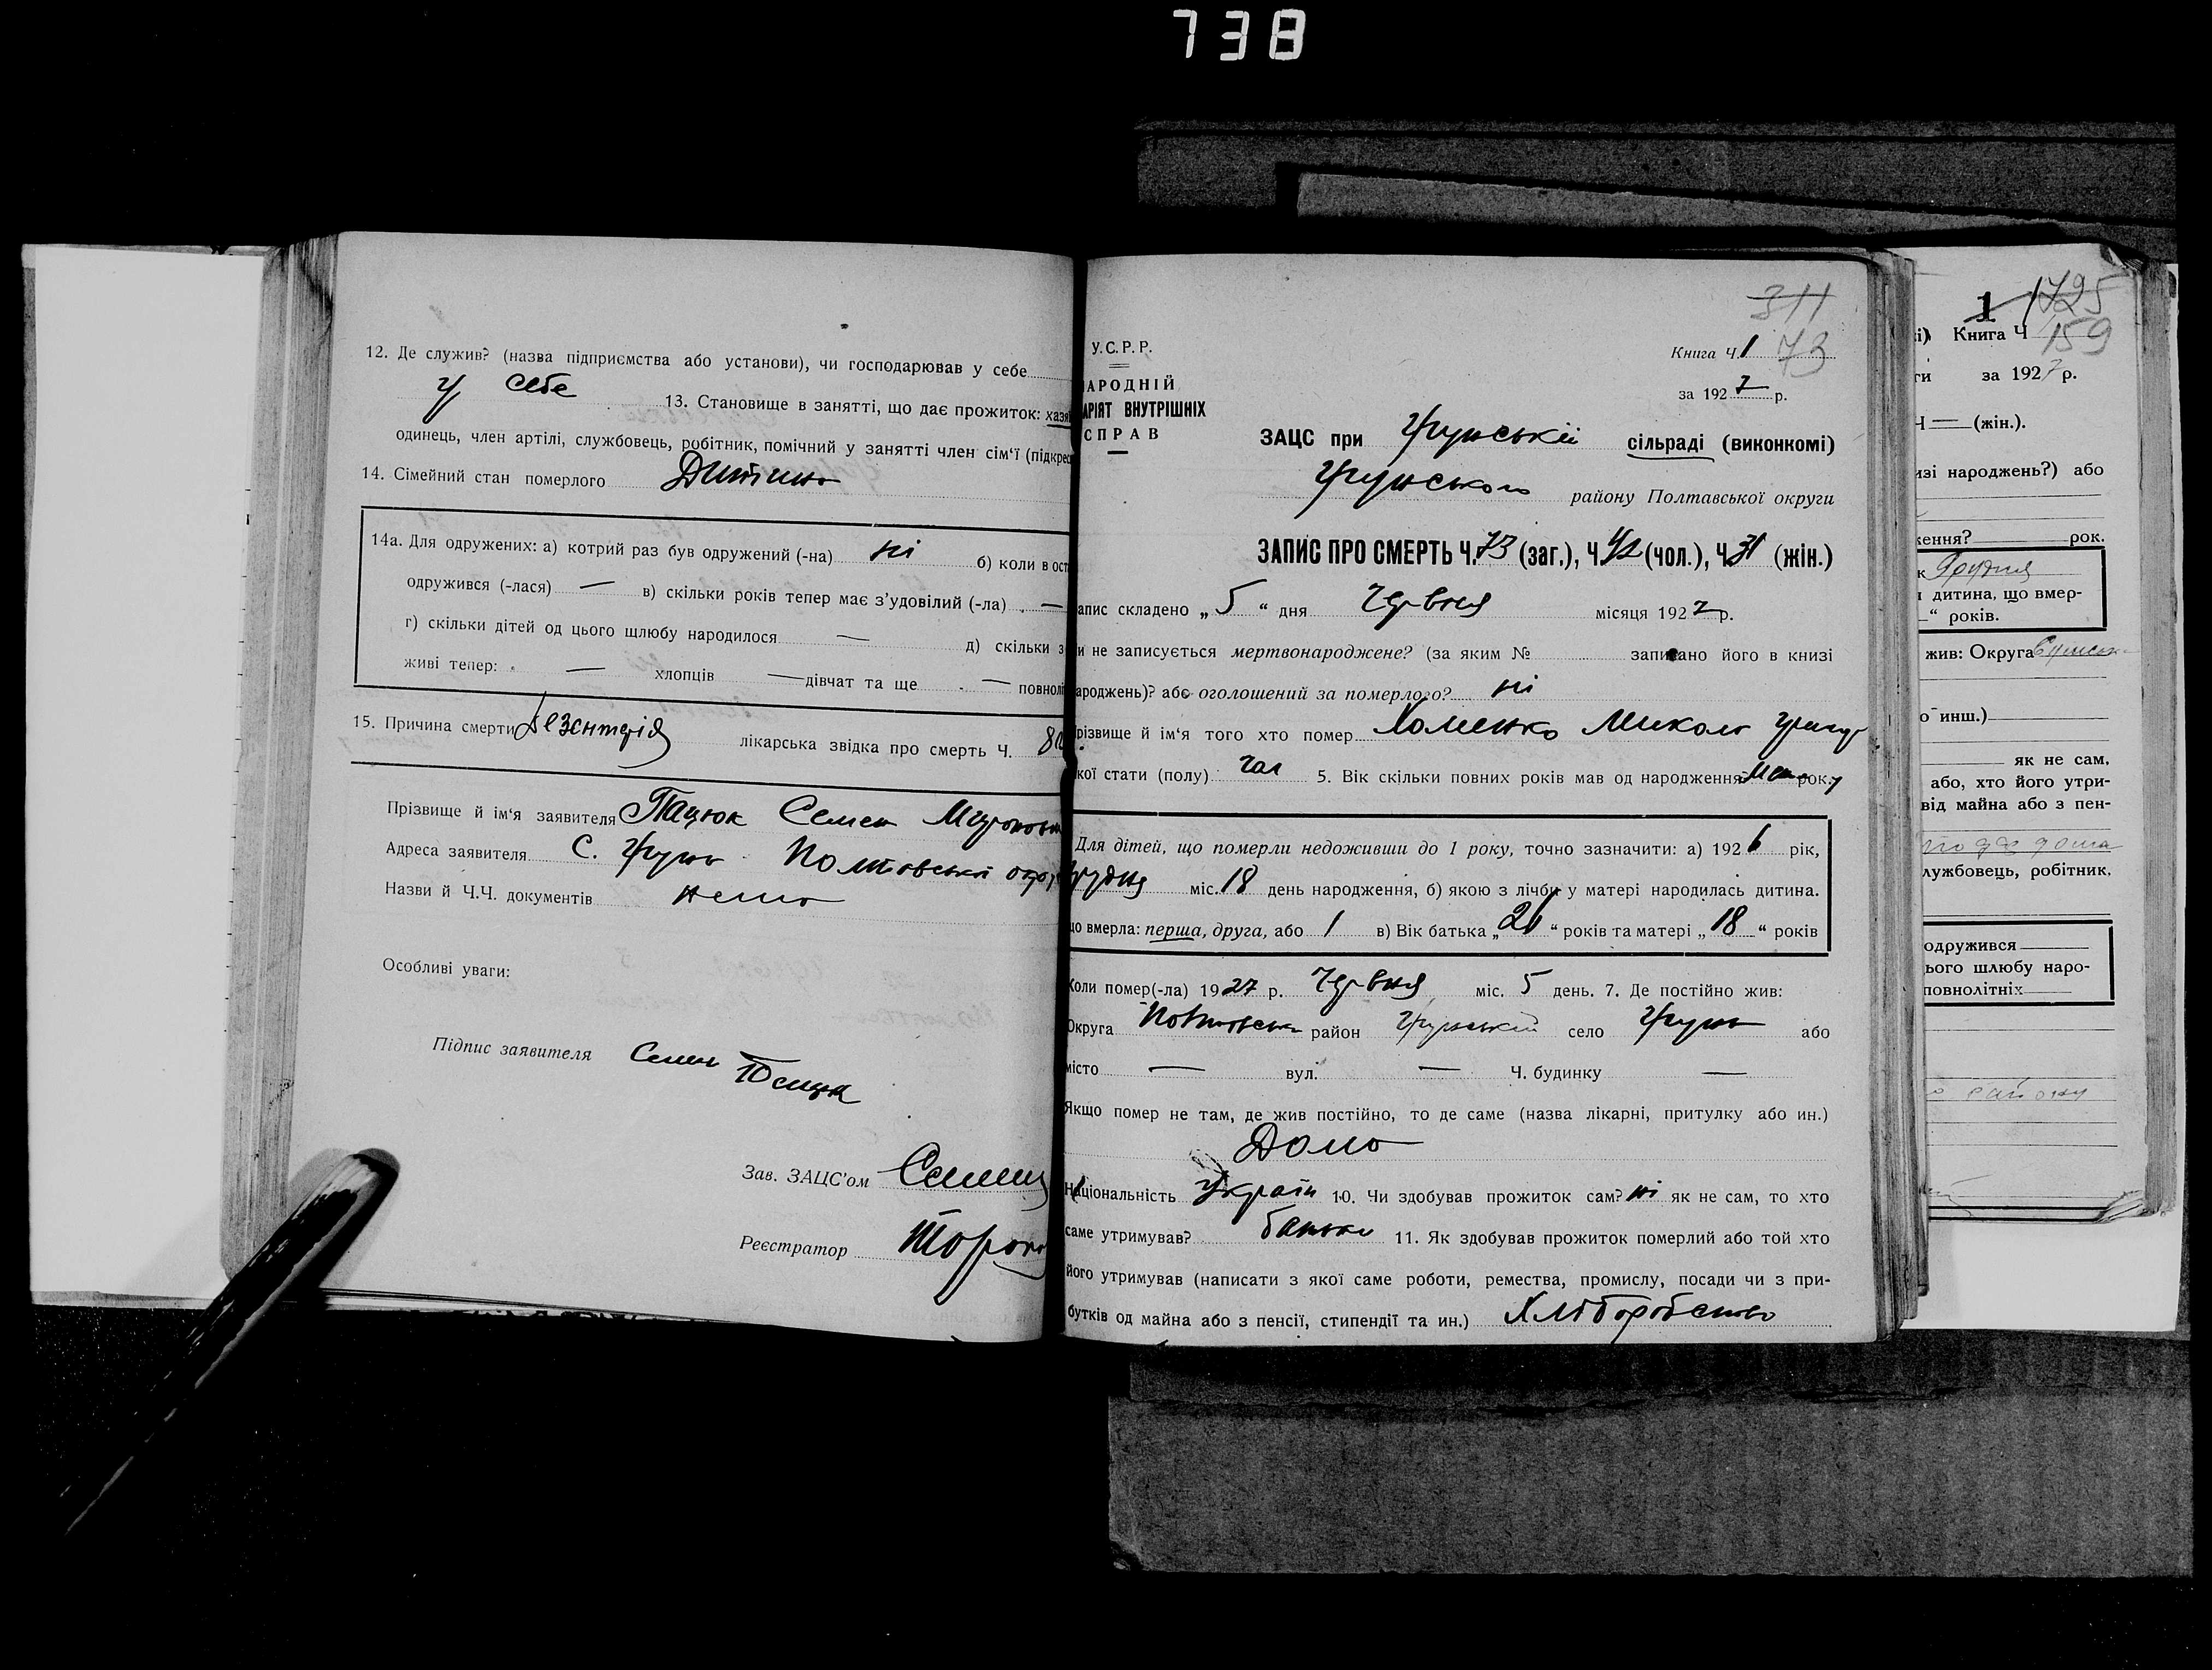 738
12. Де служив? (назва підприємства або установи), чи господарював у себе
у себе 13. Становище в занятті, що дає прожиток: хазя
одинець, член артілі, службовець, робітник, помічний у занятті член сім'ї (підкрес
14. Сімейний стан померлого Дитина
14а. Для одружених: а) котрий раз був одружений (-на) ні б) коли в ост
одружився (-лася) — в) скільки років тепер має з'удовілий (-ла) —
г) скільки дітей од цього шлюбу народилося — д) скільки з
живі тепер: — хлопців — дівчат та ще — повнолі
15. Причина смерти Дезентерія лікарська звідка про смерть Ч. 80
Прізвище й ім'я заявителя Пацюк Семен
Адреса заявителя С. Грунь Полтавської окр
Назви й Ч.Ч. документів нема
Особливі уваги:
Підпис заявителя Семен
Зав. ЗАЦС'ом
Реєстратор
311
У.С.Р.Р.
Книга Ч. 1 73
АРОДНІЙ
за 1927 р.
АРІЯТ ВНУТРІШНІХ
СПРАВ
ЗАЦС при Грунській сільраді (виконкомі)
Грунського району Полтавської округи
ЗАПИС ПРО СМЕРТЬ Ч. 73 (заг.), Ч. 42 (чол.), Ч. 31 (жін.)
апис складено „ 5 “ дня Червня місяця 1927 р.
и не записується мертвонароджене? (за яким № записано його в книзі
ароджень)? або оголошений за померлого? ні
різвище й ім'я того хто помер Хоменко Микола Григор
кої стати (полу) чол 5. Вік скільки повних років мав од народження рок
Для дітей, що померли недоживши до 1 року, точно зазначити: а) 1926 рік,
грудня міс. 18 день народження, б) якою з лічби у матері народилась дитина.
що вмерла: перша, друга, або 1 в) Вік батька „ 20 “ років та матері „ 18 “ років
Коли помер(-ла) 1927 р. Червня міс. 5 день. 7. Де постійно жив:
Округа Полтавська район Грунський село Грунь або
місто — вул. — Ч. будинку —
Якщо помер не там, де жив постійно, то де саме (назва лікарні, притулку або ин.)
Дома
Національність Україн 10. Чи здобував прожиток сам? ні як не сам, то хто
саме утримував? батько 11. Як здобував прожиток померлий або той хто
його утримував (написати з якої саме роботи, ремества, промислу, посади чи з при-
бутків од майна або з пенсії, стипендії та ин.) Хліборобство
1 1725
кі) Книга Ч 159
ги за 1927 р.
Ч — (жін.).
изі народжень?) або
ження? рок.
к Грудня
і дитина, що вмер-
“ років.
жив: Округа Сумськ
о инш.)
як не сам,
або, хто його утри-
від майна або з пен-
лужбовець, робітник,
одружився
ього шлюбу наро-
повнолітніх
району